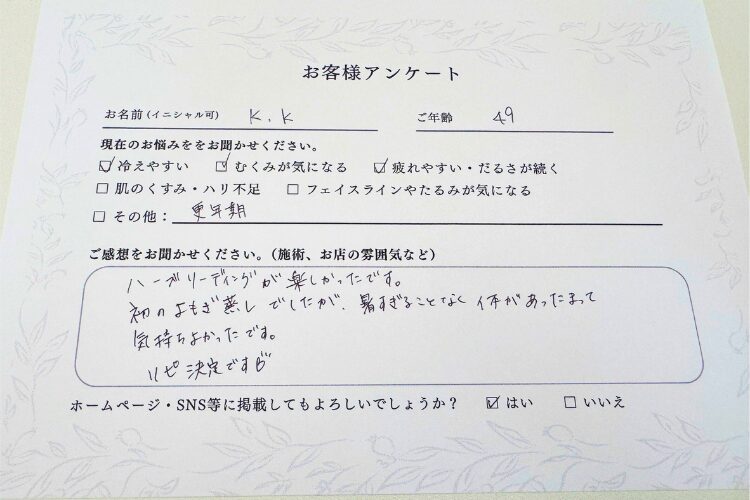 お客様アンケート
お名前(イニシャル可) K.K ご年齢 49
現在のお悩みををお聞かせください。
☑ 冷えやすい ☑ むくみが気になる ☑ 疲れやすい・だるさが続く
☐ 肌のくすみ・ハリ不足 ☐ フェイスラインやたるみが気になる
☐ その他： 更年期
ご感想をお聞かせください。（施術、お店の雰囲気など）
ハーブリーディングが楽しかったです。
初のよもぎ蒸しでしたが、暑すぎることなく体があったまって
気持ちよかったです。
リピ決定です
ホームページ・SNS等に掲載してもよろしいでしょうか？ ☑ はい ☐ いいえ